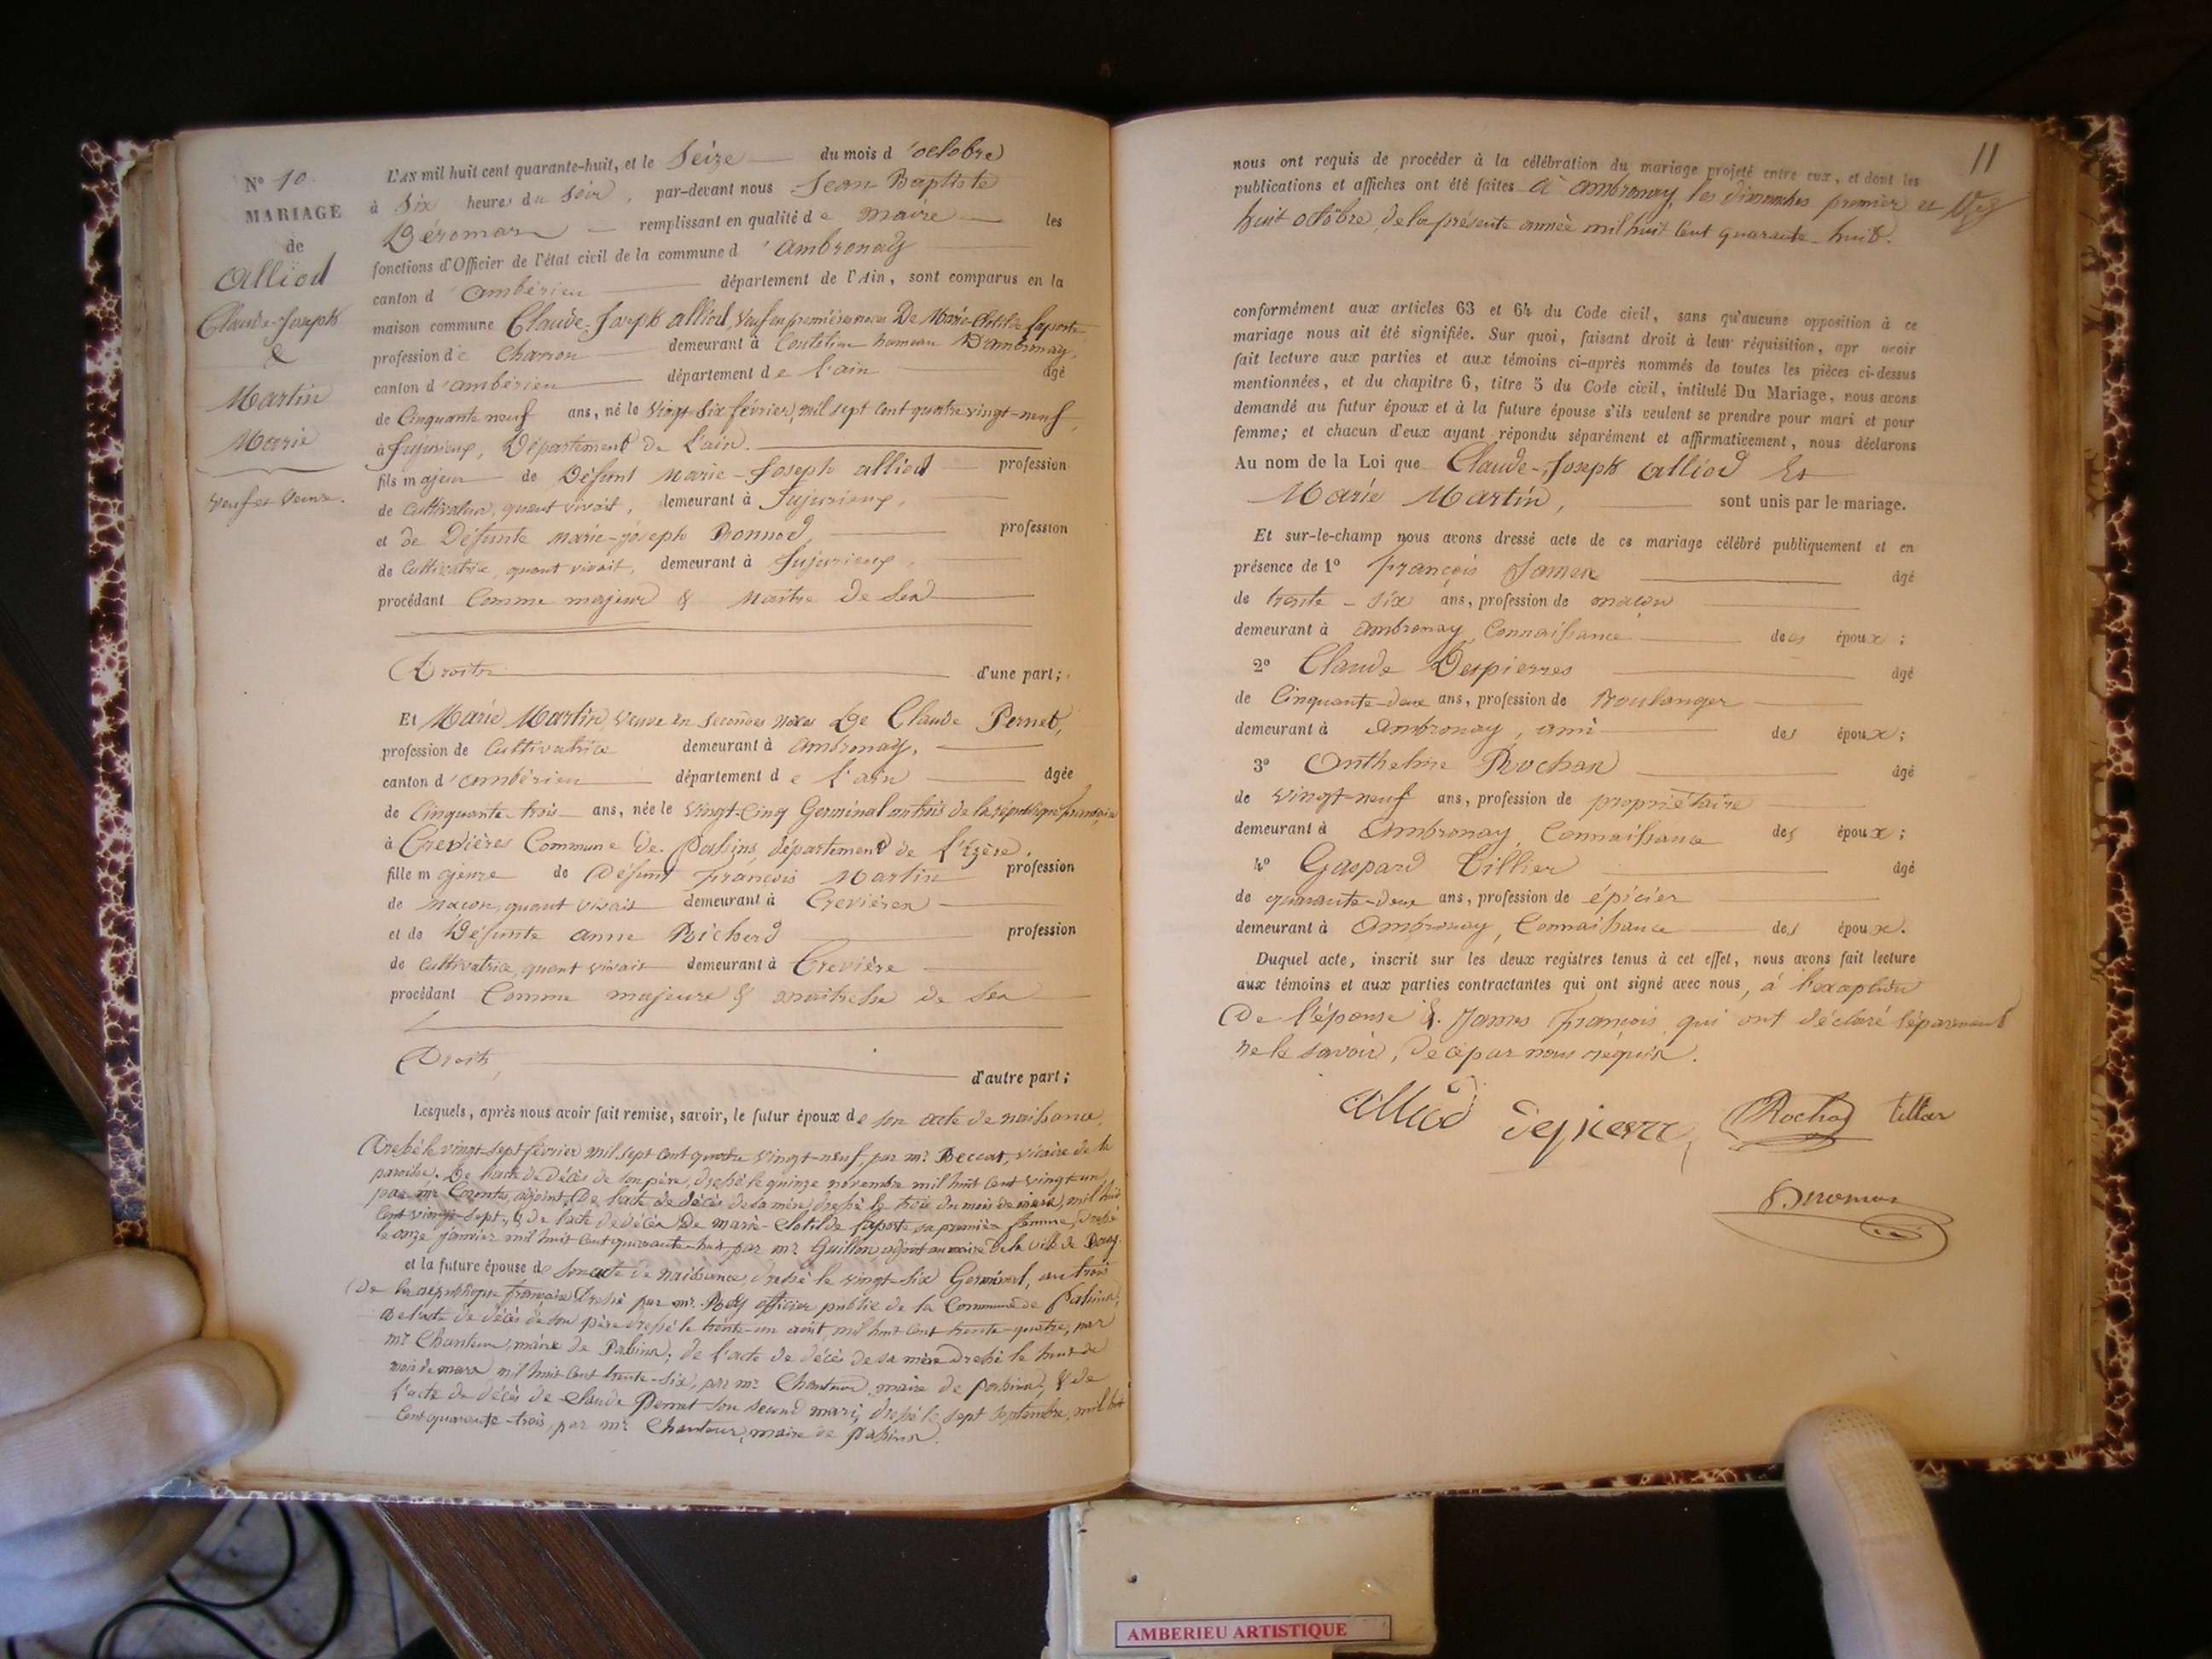 N° 10
MARIAGE
de
Alliod
Claude-Joseph
&
Martin
Marie
veuf et veuve.
L'AN mil huit cent quarante-huit, et le Seize du mois d'octobre
à Six heures du Soir, par-devant nous Jean Baptiste
Béroman remplissant en qualité de maire les
fonctions d'Officier de l'état civil de la commune d'ambronay
canton d'ambérieu département de l'Ain, sont comparus en la
maison commune Claude-Joseph alliod, veuf en premières noces De Marie-Clotilde Laporte
profession de charron demeurant à hameau D'ambronay,
canton d'ambérieu département de l'ain âgé
de Cinquante neuf ans, né le Vingt Six février, mil sept cent quatre vingt-neuf,
à Jujurieux, Département de L'ain.
fils majeur de Défunt Marie-Joseph alliod profession
de cultivateur, quant vivait, demeurant à Jujurieux,
et de Défunte Marie-joseph Bonnod, profession
de Cultivatrice, quant vivait, demeurant à Jujurieux,
procédant Comme majeur & Maître de Ses
Droits d'une part;
Et Marie Martin, Veuve en Secondes noces De Claude Pernet,
profession de Cultivatrice demeurant à ambronay,
canton d'ambérieu département de l'ain âgée
de Cinquante-trois ans, née le Vingt-Cinq Germinal an trois de la république française
à Crevières Commune de département de l'Izère.
fille majeure de Défunt François Martin profession
de maçon, quant vivait demeurant à Crevières
et de Défunte anne Richerd profession
de cultivatrice, quant vivait demeurant à Crevière
procédant Comme majeure & maîtresse de ses
Droits, d'autre part;
Lesquels, après nous avoir fait remise, savoir, le futur époux de son acte de naissance,
Dressé le vingt-sept février mil sept cent quatre vingt-neuf, par mr. Beccat, vicaire de la
paroisse, De l'acte de Décès de son père, dressé le quinze novembre mil huit cent vingt un,
par mr. adjoint, De l'acte de décès de sa mère, dressé le trois du mois de mil huit
cent vingt-sept, & de l'acte de décès De Marie-Clotilde Laporte sa première femme, dressé
le onze janvier mil huit cent quarante-huit par mr. Guillon adjoint au maire De la ville de Bourg.
et la future épouse de son acte de naissance, dressé le vingt-six Germinal, an trois
De la république française Dressé par mr. Rey officier public de la Commune de
De l'acte de décès de son père dressé le trente-un août, mil huit cent trente-quatre, par
mr. Chanteur, maire de de l'acte de décès de sa mère dressé le huit du
mois de mars mil huit cent trente-six, par mr. Chanteur maire de & de
l'acte de décès de Claude Pernet son second mari, dressé le sept septembre, mil huit
cent quarante-trois, par mr. Chanteur, maire de
11
nous ont requis de procéder à la célébration du mariage projeté entre eux, et dont les
publications et affiches ont été faites à ambronay les dimanches premier et
huit octobre, de la présente année mil huit Cent quarante-huit.
conformément aux articles 63 et 64 du Code civil, sans qu'aucune opposition à ce
mariage nous ait été signifiée. Sur quoi, faisant droit à leur réquisition, apr avoir
fait lecture aux parties et aux témoins ci-après nommés de toutes les pièces ci-dessus
mentionnées, et du chapitre 6, titre 5 du Code civil, intitulé Du Mariage, nous avons
demandé au futur époux et à la future épouse s'ils veulent se prendre pour mari et pour
femme; et chacun d'eux ayant répondu séparément et affirmativement, nous déclarons
Au nom de la Loi que Claude-Joseph alliod Et
Marie Martin, sont unis par le mariage.
Et sur-le-champ nous avons dressé acte de ce mariage célébré publiquement et en
présence de 1° François James âgé
de trente-six ans, profession de maçon
demeurant à ambronay, Connaissance des époux;
2° Claude Despierres âgé
de Cinquante-deux ans, profession de Boulanger
demeurant à Ambronay, ami des époux;
3° Anthelme Rochas âgé
de vingt-neuf ans, profession de propriétaire
demeurant à Ambronay, Connaissance des époux;
4° Gaspard Tillier âgé
de quarante-deux ans, profession de épicier
demeurant à Ambronay, Connaissance des époux.
Duquel acte, inscrit sur les deux registres tenus à cet effet, nous avons fait lecture
aux témoins et aux parties contractantes qui ont signé avec nous, à l'exception
De l'épouse & James François qui ont déclaré séparément
ne le savoir, de ce par nous requis.
Alliod Depierre Rochas tillier
Béroman
AMBERIEU ARTISTIQUE